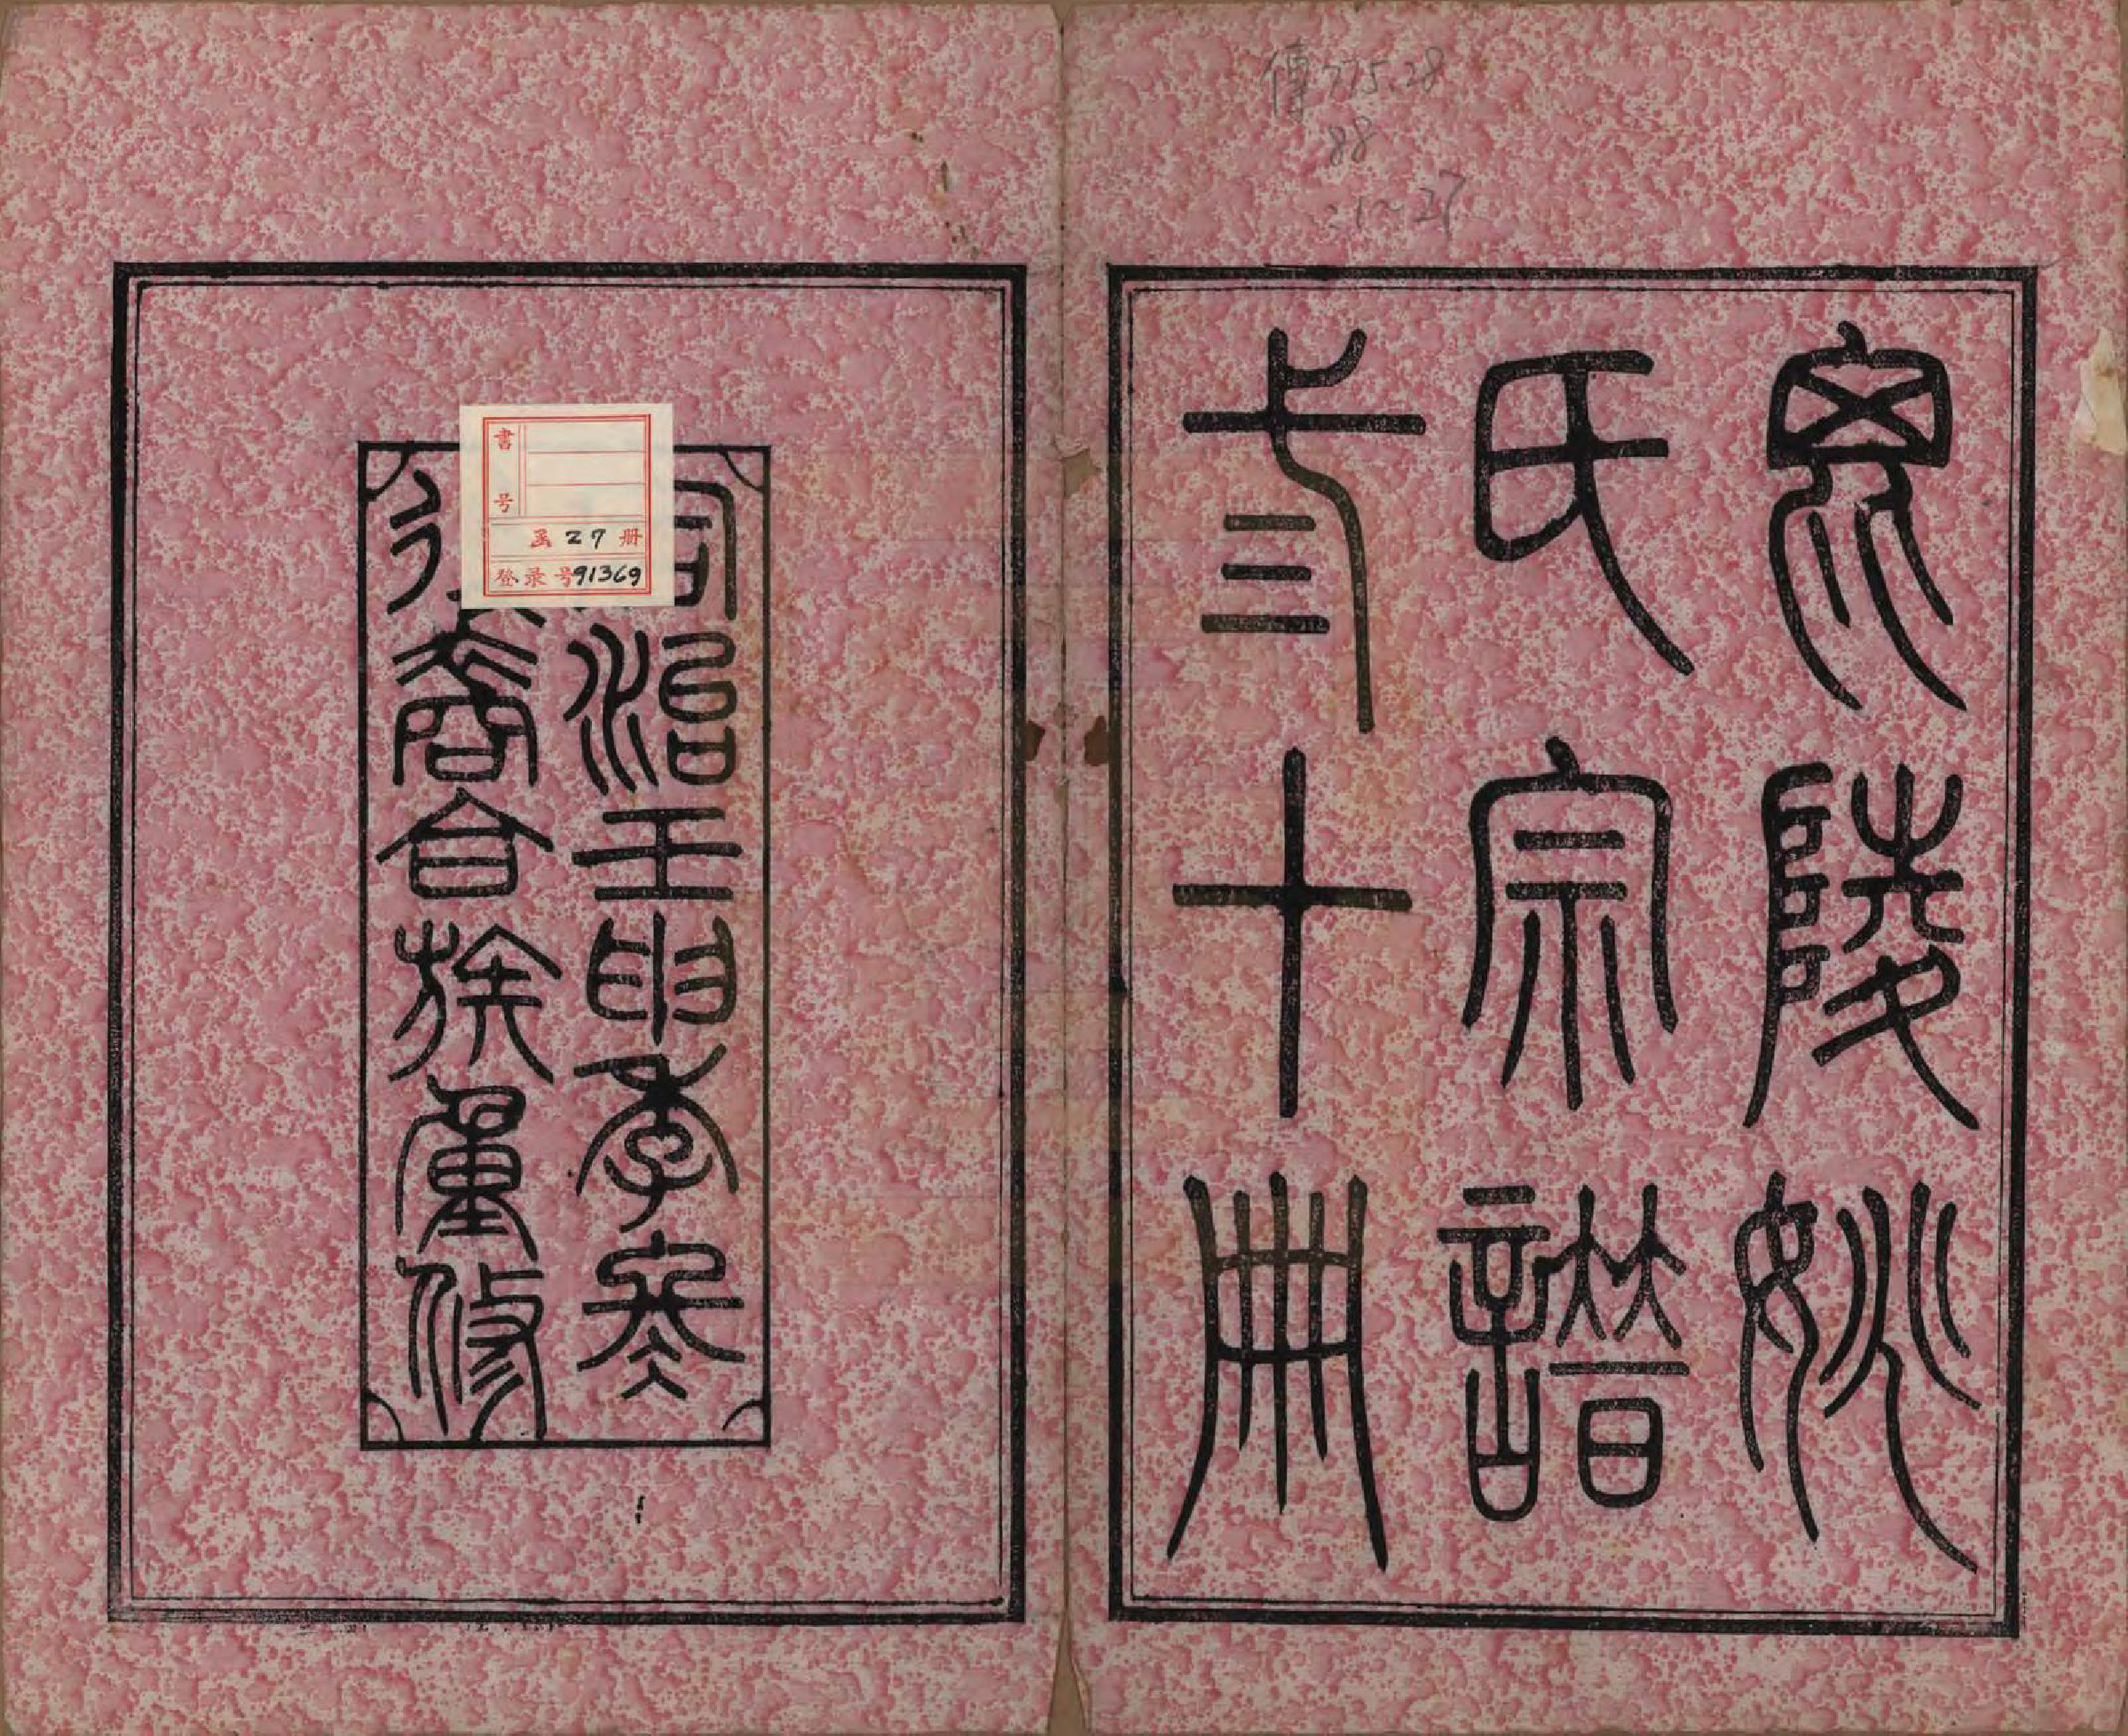 傳775.28
88
:1~27
毘陵姚
氏宗譜
弎十冊
同治壬申季冬
後裔合族重修
書号
函 27 册
登录号91369